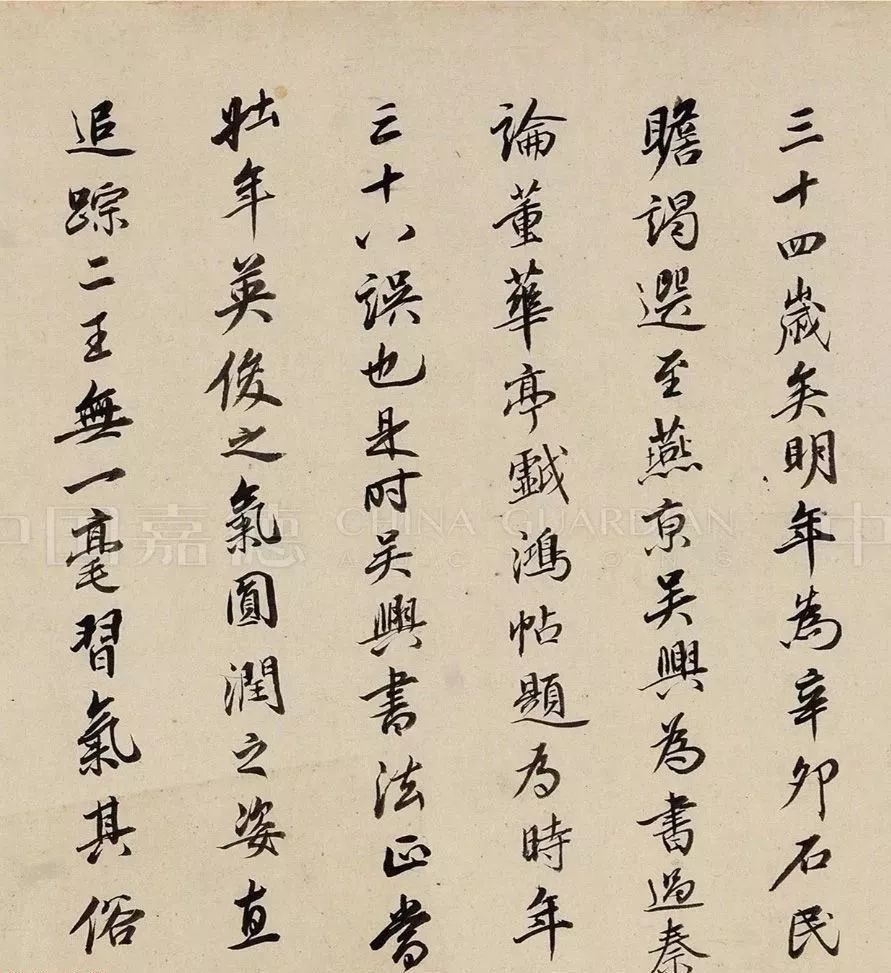 三十四歲矣明年為辛卯石民
瞻謁選至燕京吳興為書過秦
論董華亭戲鴻帖題為時年
三十八誤也是时吳興書法正當
壯年英俊之氣圓潤之姿直
追踪二王無一毫習氣其俗
中国嘉德 CHINA GUARDIAN 中